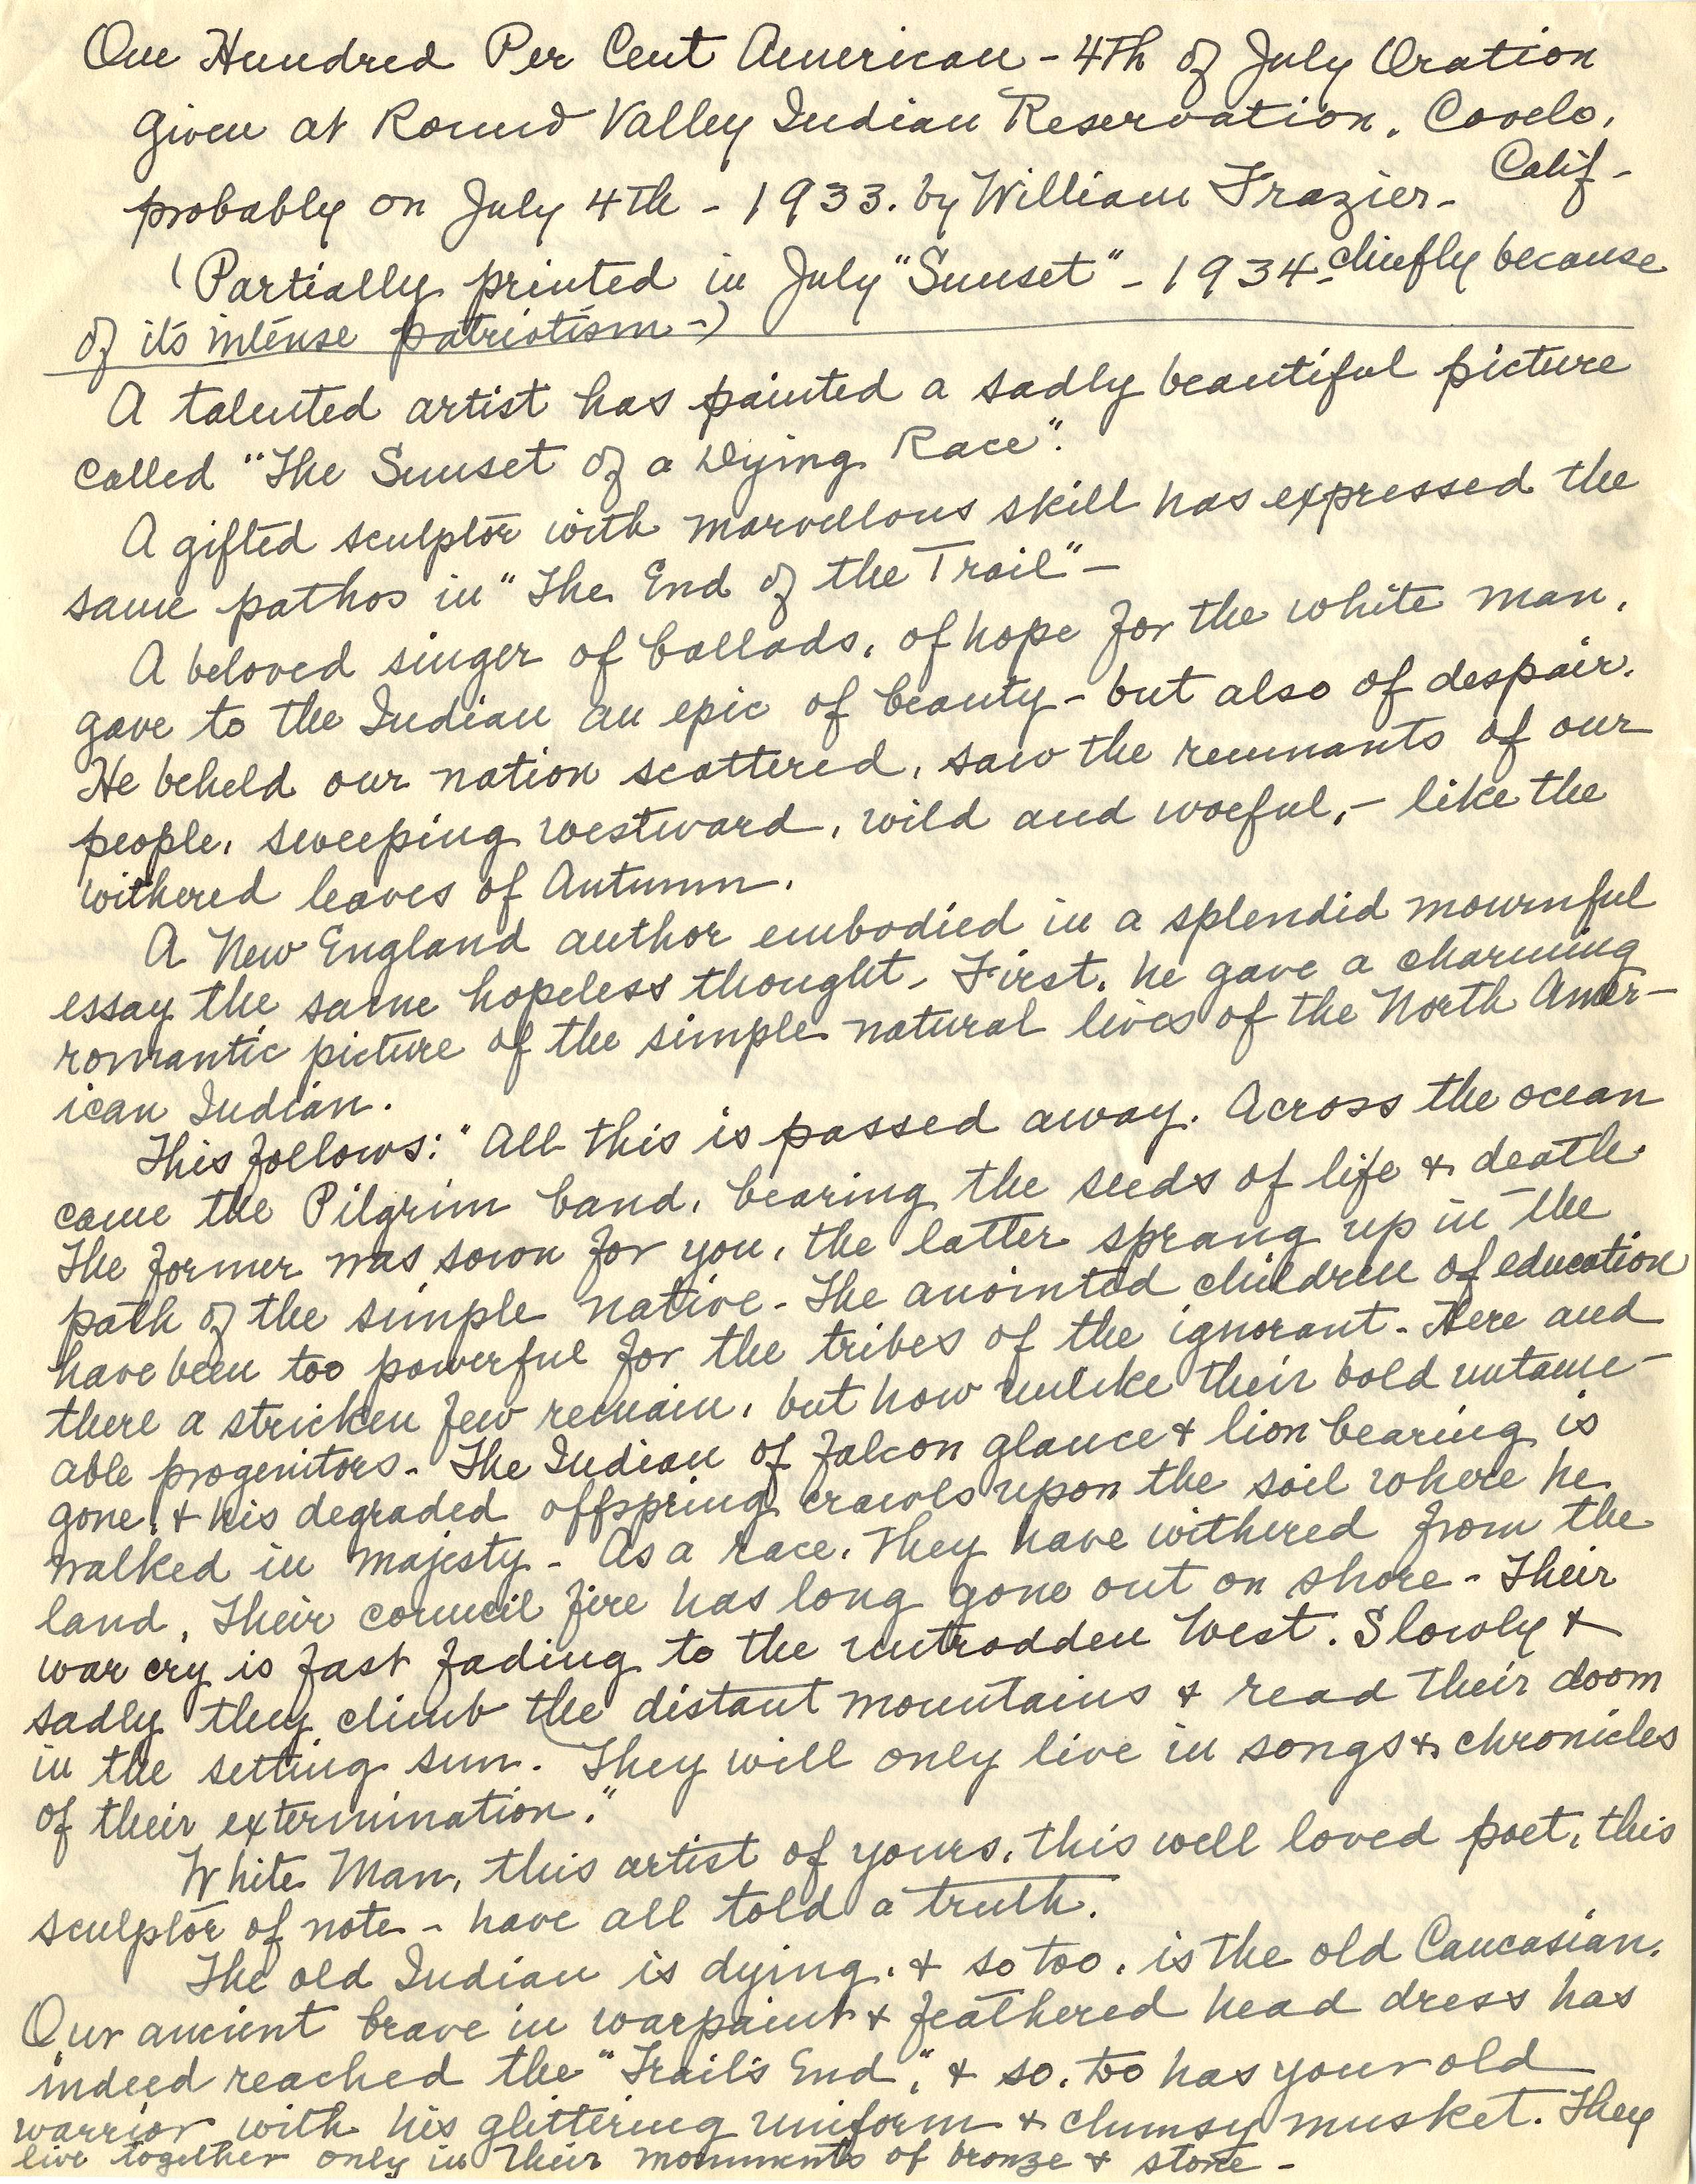 One Hundred Per Cent American - 4Th of July Oration
given at Round Valley Indian Reservation, Covelo,
Calif -
probably on July 4Th - 1933. by William Frazier -
(Partially printed in July "Sunset" - 1934 - chiefly because
of it's intense patriotism -)
A talented artist has painted a sadly beautiful picture
called "The Sunset of a Dying Race".
A gifted sculptor with marvellous skill has expressed the
same pathos in "The End of the Trail" -
A beloved singer of ballads, of hope for the white man,
gave to the Indian an epic of beauty - but also of despair.
He beheld our nation scattered, saw the remnants of our
people, sweeping westward, wild and woeful, - like the
withered leaves of Autumn.
A New England author embodied in a splendid mournful
essay the same hopeless thought - First, he gave a charming
romantic picture of the simple natural lives of the North Amer-
ican Indian.
This follows: "All this is passed away. Across the ocean
came the Pilgrim band, bearing the seeds of life & death.
The former was sown for you, the latter sprang up in the
path of the simple native - The anointed children of education
have been too powerful for the tribes of the ignorant - Here and
there a stricken few remain, but how unlike their bold untame-
able progenitors - The Indian of falcon glance & lion bearing is
gone, & his degraded offspring crawls upon the soil where he
walked in majesty - As a race, They have withered from the
land, Their council fire has long gone out on shore - Their
war cry is fast fading to the untrodden West. Slowly &
sadly they climb the distant mountains & read their doom
in the setting sun. They will only live in songs & chronicles
of their extermination."
White Man, this artist of yours, this well loved poet, this
sculptor of note - have all told a truth.
The old Indian is dying, & so too, is the old Caucasian.
Our ancient brave in warpaint & feathered head dress has
indeed reached the "Trail's End", & so, too has your old
warrior with his glittering uniform & clumsy musket. They
live together only in their monuments of bronze & stone -